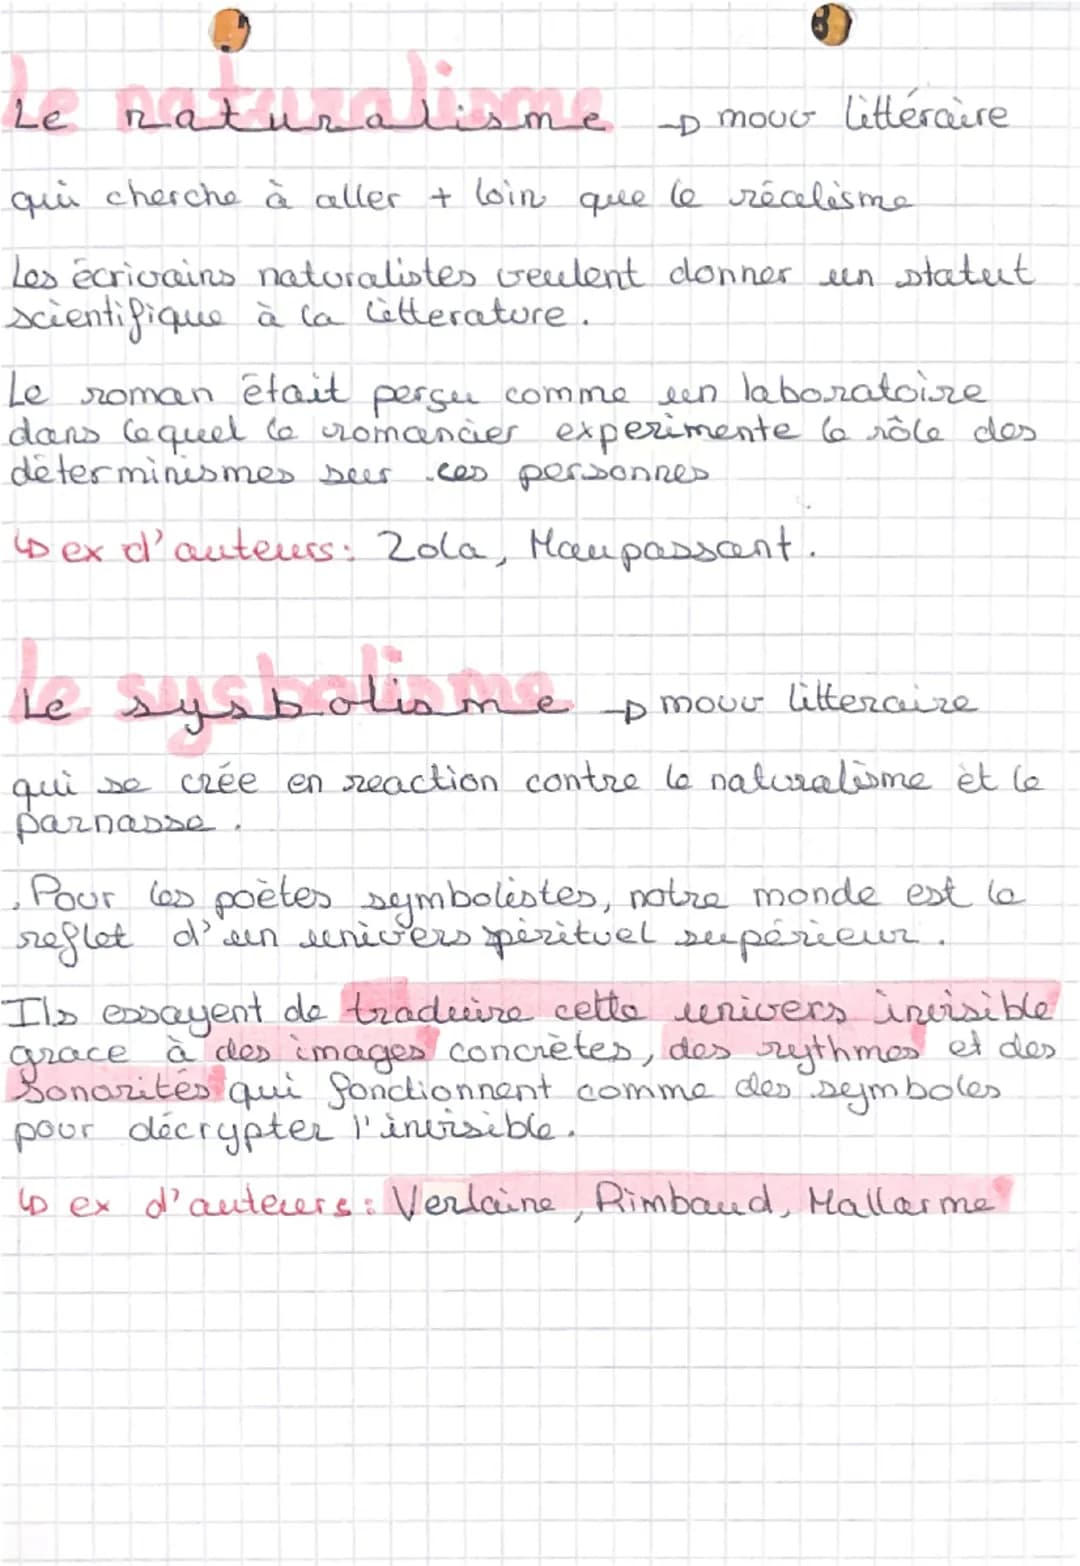 Le naturalisme → mouv littéraire
qui cherche à aller + loin que le réealisme
Les écrivains naturalistes veulent donner un statut
scientifique à la litterature.
Le roman était perçu comme un laboratoire
dans lequel le romancier experimente le rôle des
déterminismes sur ces personnes
↳ ex d'auteurs: Zola, Maupassant.
Le sysbolisme → mouv litteraire
qui se crée en reaction contre le naturalisme et le
parnasse.
. Pour les poètes symbolistes, notre monde est le
reflet d'un univers spirituel supérieur.
Ils essayent de traduire cette univers invisible
grace à des images concrètes, des rythmes et des
sonorités qui fonctionnent comme des symboles
pour décrypter l'invisible.
↳ ex d'auteurs: Verlaine, Rimbaud, Mallarme